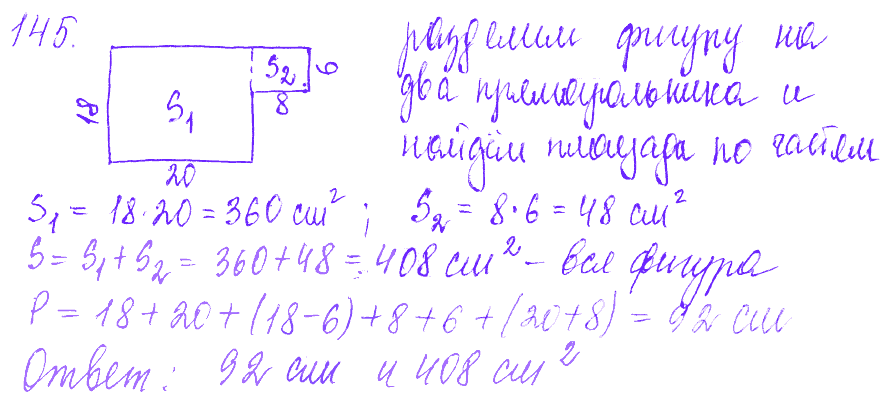 145.
разделим фигуру на
два прямоугольника и
найдём площадь по частям
18
S₁
S₂
6
8
20
S₁ = 18·20 = 360 см² ; S₂ = 8·6 = 48 см²
S = S₁ + S₂ = 360 + 48 = 408 см² – вся фигура
P = 18 + 20 + (18-6) + 8 + 6 + (20+8) = 92 см
Ответ: 92 см и 408 см²